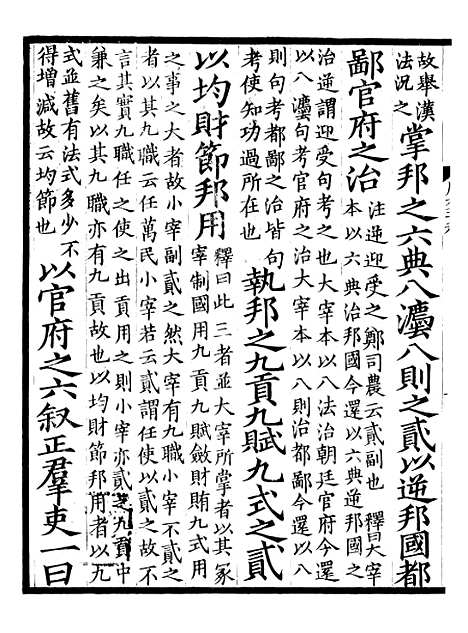 故舉漢
法況之
掌邦之六典八灋八則之貳以逆邦國都
鄙官府之治
注逆迎受之鄭司農云貳副也 釋曰大宰
本以六典治邦國今還以六典逆邦國之
治逆謂迎受句考之也大宰本以八法治朝廷官府今還
以八灋句考官府之治大宰本以八則治都鄙今還以八
則句考都鄙之治皆句
考使知功過所在也
執邦之九貢九賦九式之貳
以均財節邦用
釋曰此三者並大宰所掌者以其冢
宰制國用九貢九賦斂財賄九式用
之事之大者故小宰副貳之然大宰有九職小宰不貳之
者以其九職云任萬民小宰若云貳謂任使以貳之故不
言其實九職任之使之出貢用之則小宰亦貳之九貢中
兼之矣以其九職亦有九貢故也以均財節邦用者以九
式並舊有法式多少不
得增減故云均節也
以官府之六叙正羣吏一曰